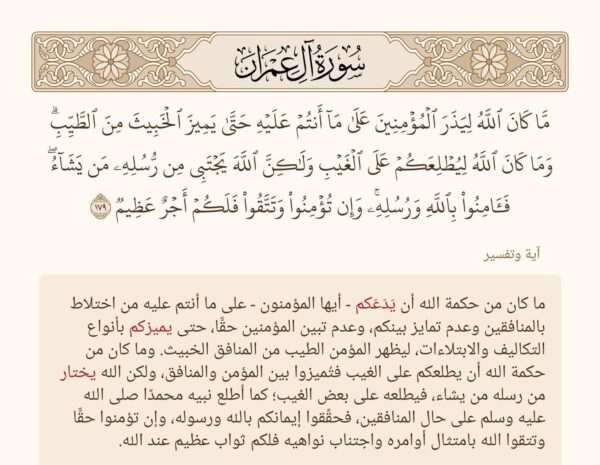 سُورَةُ آلِ عِمْرَان
مَّا كَانَ ٱللَّهُ لِيَذَرَ ٱلْمُؤْمِنِينَ عَلَىٰ مَآ أَنتُمْ عَلَيْهِ حَتَّىٰ يَمِيزَ ٱلْخَبِيثَ مِنَ ٱلطَّيِّبِۗ
وَمَا كَانَ ٱللَّهُ لِيُطْلِعَكُمْ عَلَى ٱلْغَيْبِ وَلَٰكِنَّ ٱللَّهَ يَجْتَبِى مِن رُّسُلِهِۦ مَن يَشَآءُۖ
فَـَٔامِنُوا۟ بِٱللَّهِ وَرُسُلِهِۦۚ وَإِن تُؤْمِنُوا۟ وَتَتَّقُوا۟ فَلَكُمْ أَجْرٌ عَظِيمٌ ١٧٩
آية وتفسير
ما كان من حكمة الله أن يَدَعَكم - أيها المؤمنون - على ما أنتم عليه من اختلاط
بالمنافقين وعدم تمايز بينكم، وعدم تبين المؤمنين حقًّا، حتى يميزكم بأنواع
التكاليف والابتلاءات، ليظهر المؤمن الطيب من المنافق الخبيث. وما كان من
حكمة الله أن يطلعكم على الغيب فتُميزوا بين المؤمن والمنافق، ولكن الله يختار
من رسله من يشاء، فيطلعه على بعض الغيب؛ كما أطلع نبيه محمدًا صلى الله
عليه وسلم على حال المنافقين، فحقِّقوا إيمانكم بالله ورسوله، وإن تؤمنوا حقًّا
وتتقوا الله بامتثال أوامره واجتناب نواهيه فلكم ثواب عظيم عند الله.